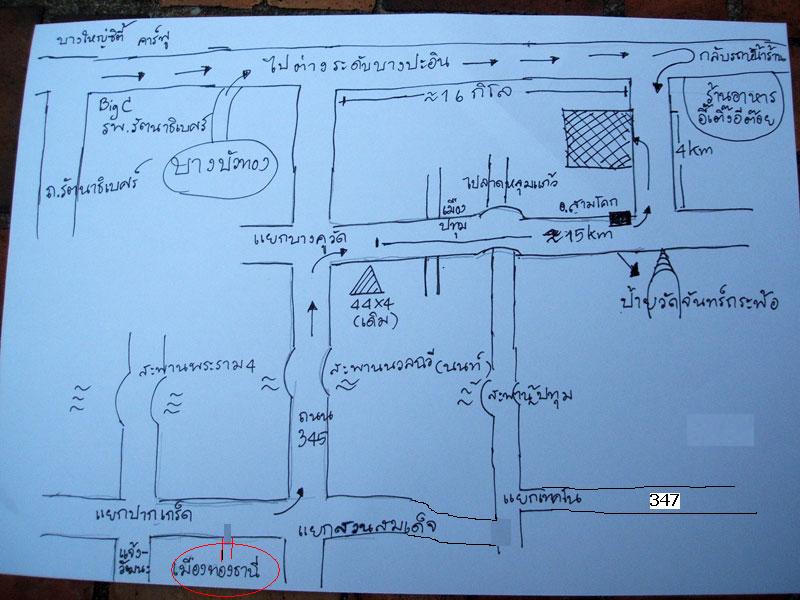 บางใหญ่ซิตี้ คาร์ฟู
ไปต่างระดับบางปะอิน
กลับรถ
Big C
รพ.รัตนาธิเบศร์
≈16 กิโล
ร้านอาหาร
4 km
บางบัวทอง
ถ.รัตนาธิเบศร์
ไปลาดหลุมแก้ว
เมือง
ปทุม
อ.สามโคก
แยกบางคูวัด
≈15 km
44x4
(เดิม)
ป้ายวัดจันทร์กระพ้อ
สะพานพระราม 4
สะพานนวลฉวี (นนท์)
สะพานปทุม
ถนน
345
แยกปากเกร็ด
แยกสวนสมเด็จ
แยกเทคโน
347
แจ้ง-
วัฒนะ
เมืองทองธานี